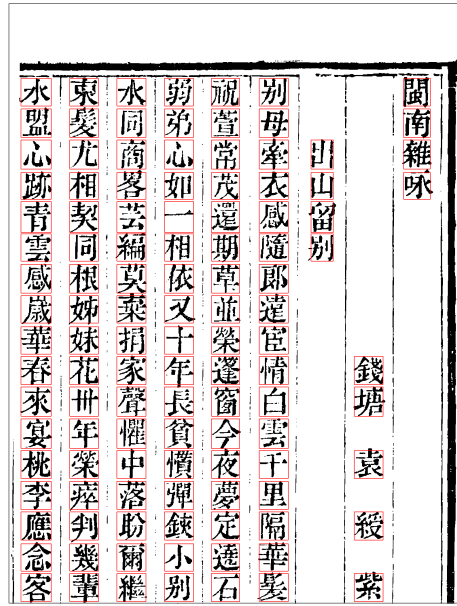 閩南雜咏
錢塘袁綬紫
出山留别
别母牽衣感隨郎遠宦情白雲千里隔華髮
祝萱常茂還期草並榮蓬窗今夜夢定遶石
弱弟心如一相依又十年長貧慣彈鋏小别
水同商畧芸編莫棄捐家聲懼中落盼爾繼
束髮尤相契同根姊妹花卅年榮瘁判幾輩
水盟心跡青雲感歲華春來宴桃李應念客